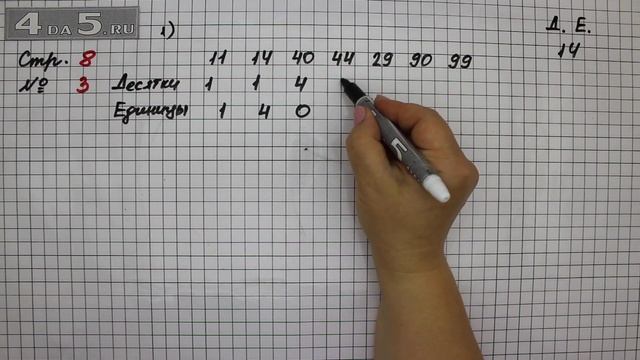 4DA5.RU
1)
Д. Е.
14
Стр. 8 11 14 40 44 29 90 99
№ 3 Десятки 1 1 4
Единицы 1 4 0